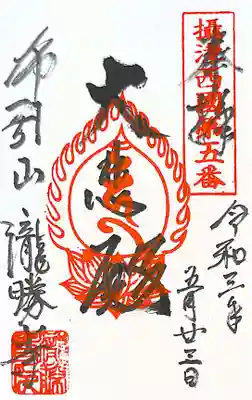 攝津西國第五番
奉拝
令和三年
五月廿三日
大悲殿
布引山
瀧勝寺